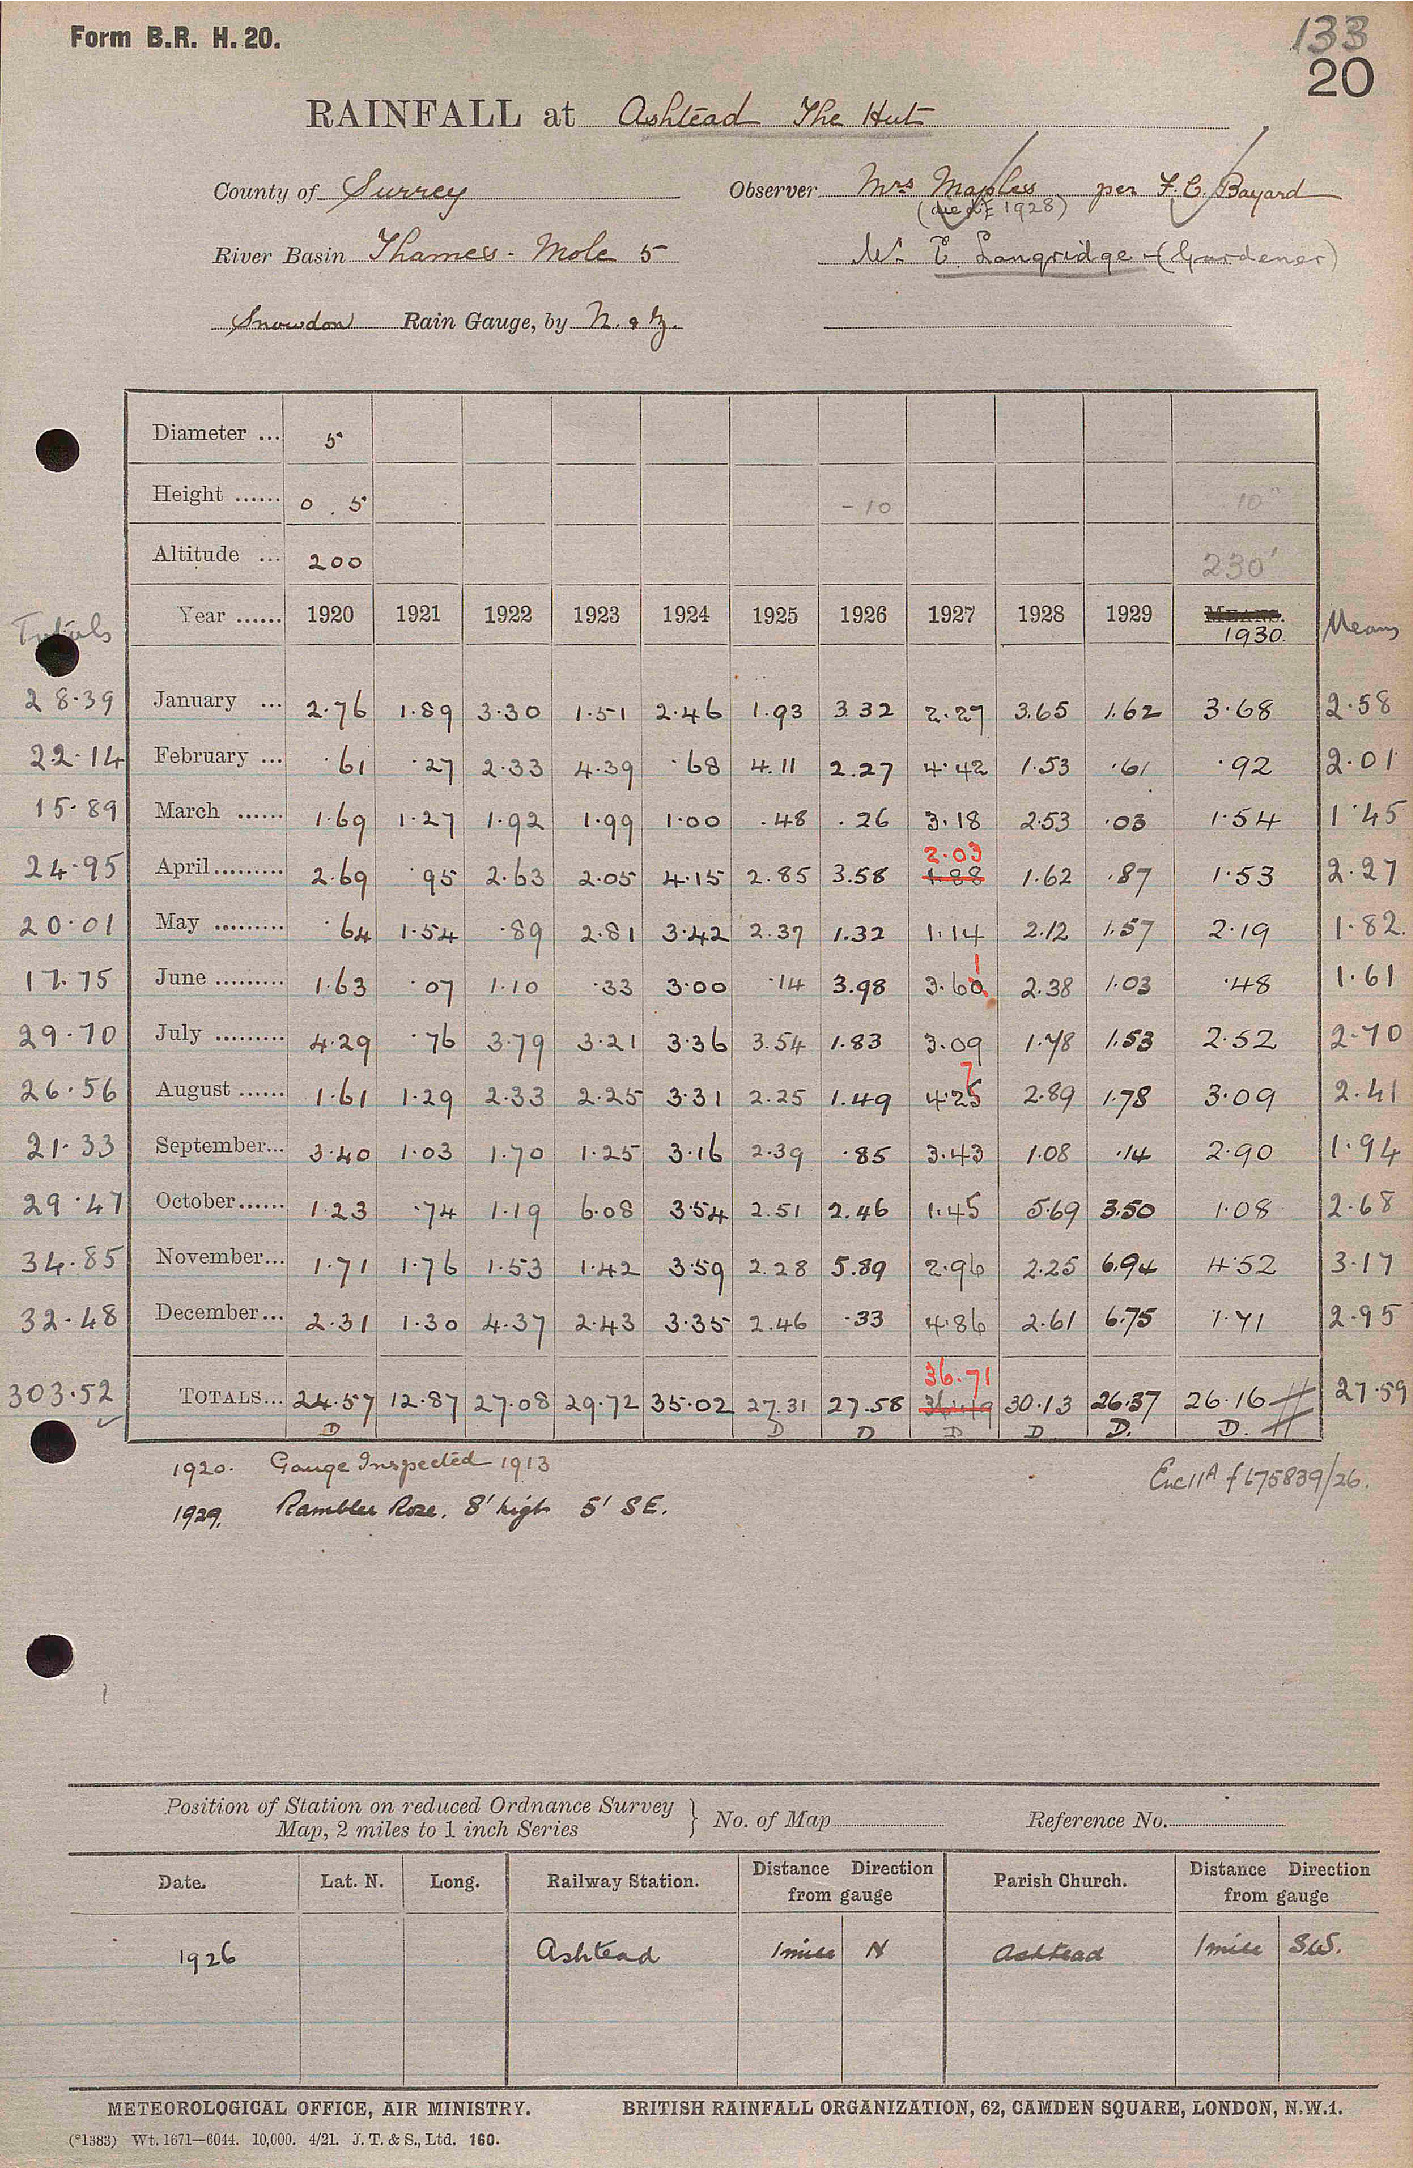 Form B.R. H. 20.
133
20
RAINFALL at Ashtead The Hut
County of Surrey Observer Mrs Maples per F. C. Bayard
(died 1928)
River Basin Thames - Mole 5 Mr E Langridge (Gardener)
Snowdon Rain Gauge, by N. & Z.
Diameter ... 5"
Height ...... 0 . 5 -10 10"
Altitude ... 200 230'
Totals Year ...... 1920 1921 1922 1923 1924 1925 1926 1927 1928 1929 MEANS. 1930 Means
28.39 January ... 2.76 1.89 3.30 1.51 2.46 1.93 3.32 2.27 3.65 1.62 3.68 2.58
22.14 February ... .61 .27 2.33 4.39 .68 4.11 2.27 4.42 1.53 .61 .92 2.01
15.89 March ...... 1.69 1.27 1.92 1.99 1.00 .48 .26 3.18 2.53 .03 1.54 1.45
2.03
24.95 April ......... 2.69 .95 2.63 2.05 4.15 2.85 3.58 1.88 1.62 .87 1.53 2.27
20.01 May ......... .64 1.54 .89 2.81 3.42 2.37 1.32 1.14 2.12 1.57 2.19 1.82
1
17.75 June ......... 1.63 .07 1.10 .33 3.00 .14 3.98 3.60 2.38 1.03 .48 1.61
29.70 July ......... 4.29 .76 3.79 3.21 3.36 3.54 1.83 3.09 1.78 1.53 2.52 2.70
7
26.56 August ...... 1.61 1.29 2.33 2.25 3.31 2.25 1.49 4.25 2.89 1.78 3.09 2.41
21.33 September... 3.40 1.03 1.70 1.25 3.16 2.39 .85 3.43 1.08 .14 2.90 1.94
29.47 October...... 1.23 .74 1.19 6.08 3.54 2.51 2.46 1.45 5.69 3.50 1.08 2.68
34.85 November... 1.71 1.76 1.53 1.42 3.59 2.28 5.89 2.96 2.25 6.94 4.52 3.17
32.48 December... 2.31 1.30 4.37 2.43 3.35 2.46 .33 4.86 2.61 6.75 1.71 2.95
36.71
303.52 TOTALS... 24.57 12.87 27.08 29.72 35.02 27.31 27.58 36.49 30.13 26.37 26.16 27.59
D D D D D D. D.
1920. Gauge Inspected 1913
Encl1A f 675839/26.
1929. Rambler Rose. 8' high 5' SE.
Position of Station on reduced Ordnance Survey
Map, 2 miles to 1 inch Series } No. of Map Reference No.
Date. Lat. N. Long. Railway Station. Distance Direction from gauge Parish Church. Distance Direction from gauge
1926 Ashtead 1 mile N Ashtead 1 mile SW.
METEOROLOGICAL OFFICE, AIR MINISTRY. BRITISH RAINFALL ORGANIZATION, 62, CAMDEN SQUARE, LONDON, N.W.1.
(*1383) Wt. 1671—6044. 10,000. 4/21. J. T. & S., Ltd. 160.